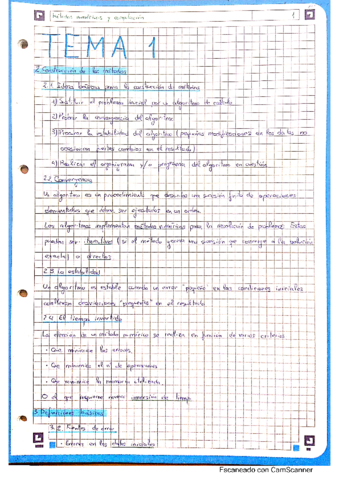 Métodos numéricos y computación 1
TEMA 1
2. Construcción de los métodos
2.1. Ideas básicas para la construcción de métodos
1) Sustituir el problema inicial por un algoritmo de cálculo
2) Probar la convergencia del algoritmo
3) Probar la estabilidad del algoritmo (pequeñas modificaciones en los datos no
ocasionan grandes cambios en el resultado)
4) Realizar el organigrama y/o programa del algoritmo en cuestión
2.2 Convergencia
Un algoritmo es un procedimiento que describe una sucesión finita de operaciones
elementales que deben ser ejecutadas en un orden
Los algoritmos implementan métodos numéricos para la resolución de problemas. Estos
pueden ser iterativos (si el método genera una sucesión que converge a la solución
exacta) o directos
2.3 La estabilidad
Un algoritmo es estable cuando un error "pequeño" en las condiciones iniciales
"pequeñas" en el resultado
2.4 El tiempo invertido
La elección de un método numérico se realiza en función de varios criterios
- Que minimice los errores
- Que minimice el nº de operaciones
- Que minimice la memoria utilizada
O el que requiera menor de tiempo
3. Definiciones básicas
3.1. Fuentes de error
- Errores en los datos iniciales
Escaneado con CamScanner